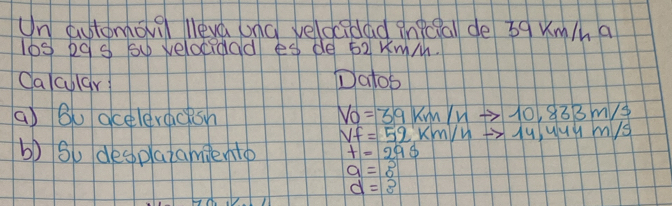 Un automóvil lleva una velocidad inicial de 39 Km/h a
los 29 s su velocidad es de 52 Km/h.
Calcular:
a) Su aceleración
b) Su desplazamiento
Datos
Vo = 39 Km/h → 10,833 m/s
Vf = 52 Km/h → 14,444 m/s
t = 29 s
a = ?
d = ?